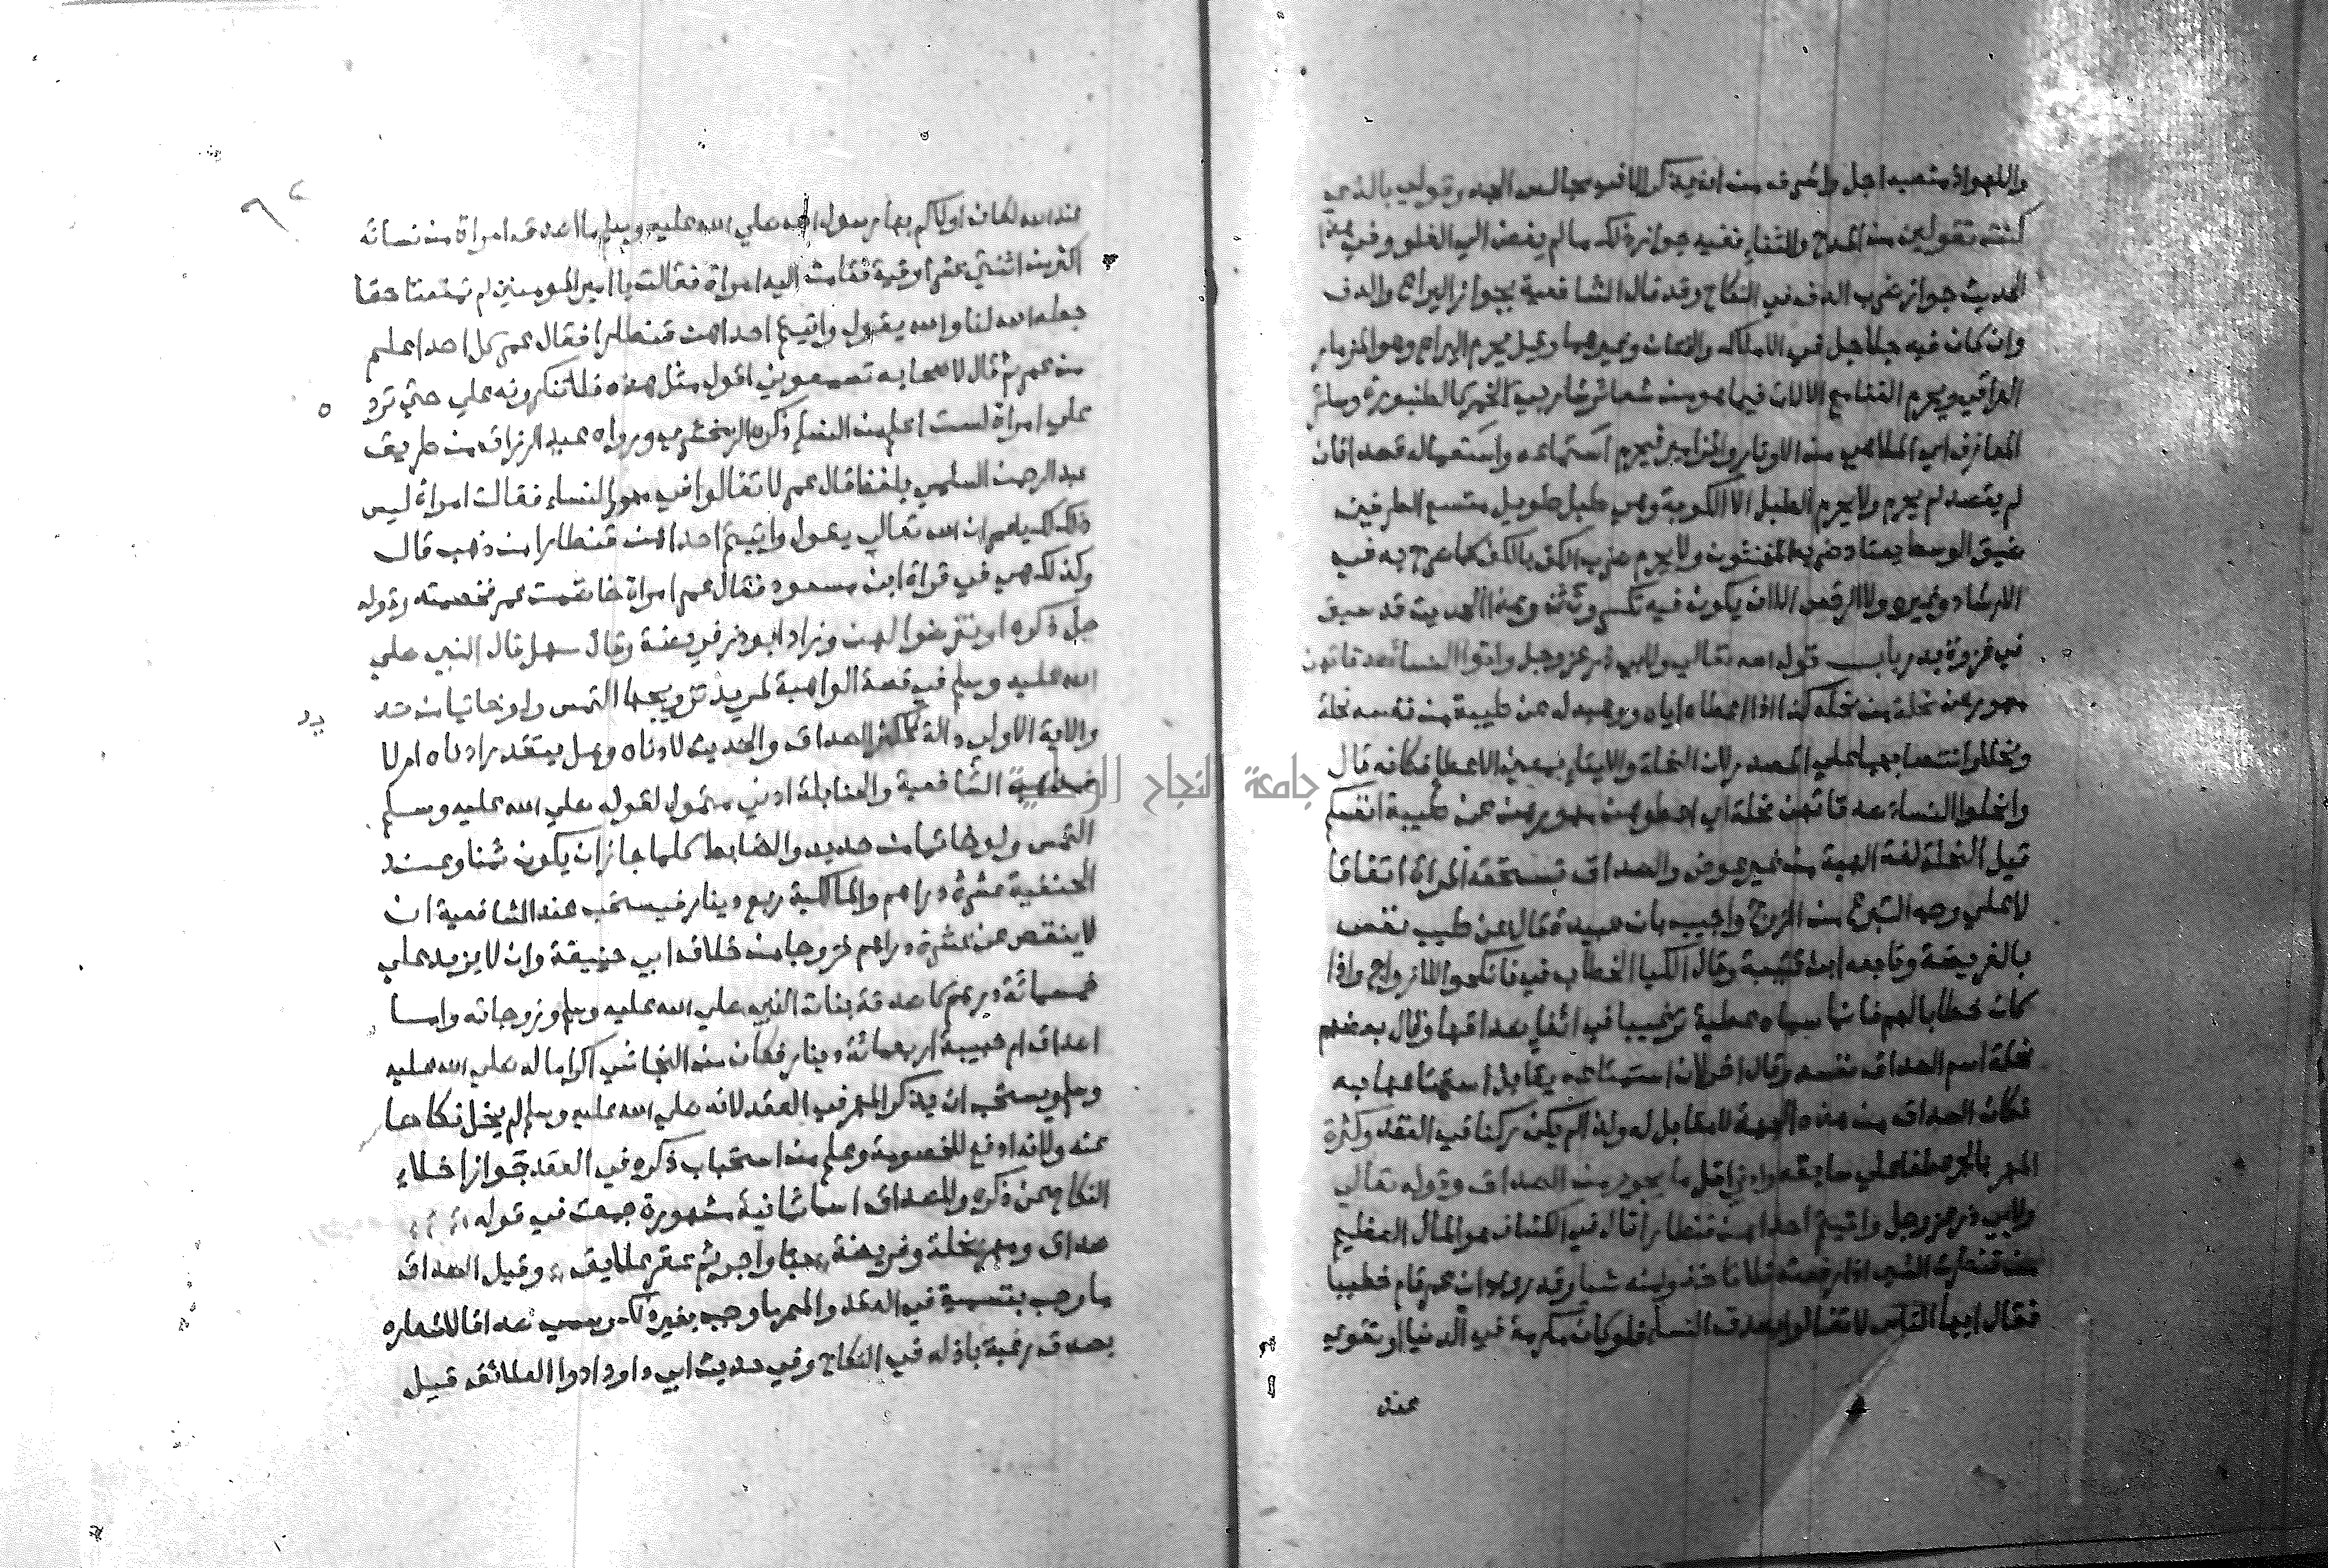 واللهو اذ منصبه اجل واشرف من ان يذكر الا في مجالس الجد وقولي بالذي
كنت تقولين من المدح والثناء ففيه جواز ذلك ما لم يفض الي الغلو وفي هذا
الحديث جواز ضرب الدف في النكاح وقد قال الشافعية بجواز اليراع والدف
وان كان فيه جلاجل في الاملاك والختان وغيرهما وقيل يحرم اليراع وهو المزمار
العراقي ويحرم الغناء مع الالات فيما هو من شعار شاربي الخمر كالطنبور وسائر
المعازف اي الملاهي من الاوتار والمزامير فيحرم استماعه واستعماله قصدا فان
لم يقصد لم يحرم ولا يحرم الطبل الا الكوبة وهي طبل طويل متسع الطرفين
ضيق الوسط يعتاد ضربه المخنثون ولا يحرم ضرب الكف بالكف كما صرح به في
الارشاد وغيره ولا الرقص الا ان يكون فيه تكسر وتثن وهذا الحديث قد سبق
في غزوة بدر باب قول الله تعالي ولابي ذر عز وجل واتوا النساء صدقاتهن
مهورهن عن نحلة من نحله كذا اذا اعطاه اياه ووهبه له عن طيبة من نفسه نحلة
ونحلا وانتصابها علي المصدر لان النحلة والايتاء بمعني الاعطا فكانه قال
وانحلوا النساء صدقاتهن نحلة اي اعطوهن مهورهن عن طيبة انفسكم
قيل النحلة لغة الهبة من غير عوض والصداق تستحقه المراة اتفاقا
لا علي وجه التبرع من الزوج واجيب بان عبيدة قال عن طيب نفس
بالفريضة وتابعه ابن قتيبة وقال الكيا الخطاب في فانكحوا للازواج واذا
كان خطابا لهم فانما سماه عطية ترغيبا في ايفاء صداقها وقال بعضهم
نحلة اسم الصداق نفسه وقال اخر لان استمتاعه يقابل استمتاعها به
فكان الصداق من هذه الجهة لا مقابل له ولذا لم يكن ركنا في العقد وكثرة
المهر بالجر عطفا علي سابقه وادني اقل ما يجوز من الصداق وقوله تعالي
ولابي ذر عز وجل واتيتم احداهن قنطارا قال في الكشاف هو المال العظيم
من قنطرت الشي اذا رفعته فلا تاخذوا منه شيا وقد روي ان عمر قام خطيبا
فقال ايها الناس لا تغالوا بصدق النساء فلو كان مكرمة في الدنيا او تقوي
عند
عند الله لكان اولاكم بها رسول الله صلي الله عليه وسلم ما اصدق امراة من نسائه
اكثر من اثنتي عشر اوقية فقامت اليه امراة فقالت يا امير المومنين لم تمنعنا حقا
جعله الله لنا والله يقول واتيتم احداهن قنطارا فقال عمر كل احد اعلم
من عمر ثم قال لاصحابه تسمعوني اقول مثل هذه فلا تنكرونه علي حتي ترد
علي امراة ليست اعلم من النساء ذكره الزمخشري ورواه عبد الرزاق من طريق
عبد الرحمن السلمي بلفظ قال عمر لا تغالوا في مهور النساء فقالت امراة ليس
ذلك لك يا عمر ان الله تعالي يقول واتيتم احداهن قنطارا من ذهب قال
وكذلك هي في قراة ابن مسعود فقال عمر امراة خاصمت عمر فخصمته وقوله
جل ذكره او تفرضوا لهن وزاد ابو ذر فريضة وقال سهل قال النبي صلي
الله عليه وسلم في قصة الواهبة لمريد تزويجها التمس ولو خاتما من حديد
والاية الاولي دالة لاكثر الصداق والحديث لادناه وهل يتقدر ادناه ام لا
فمذهب الشافعية والحنابلة ادني متمول لقوله صلي الله عليه وسلم
التمس ولو خاتما من حديد والضابط كلما جاز ان يكون ثمنا وعند
الحنفية عشرة دراهم والمالكية ربع دينار فيستحب عند الشافعية ان
لا ينقص عن عشرة دراهم خروجا من خلاف ابي حنيفة وان لا يزيد علي
خمسمائة درهم كاصدقة بنات النبي صلي الله عليه وسلم وزوجاته واما
اصداق ام حبيبة اربعمائة دينار فكان من النجاشي اكراما له صلي الله عليه
وسلم ويستحب ان يذكر المهر في العقد لانه صلي الله عليه وسلم لم يخل نكاحا
عنه ولانه ادفع للخصومة وعلم من استحباب ذكره في العقد جواز اخلاء
النكاح عن ذكره وللصداق اسما ثمانية مشهورة جمعت في قوله
صداق ومهر نحلة وفريضة حبا واجر ثم عقر علايق وقيل الصداق
ما وجب بتسمية في العقد والمهر ما وجب بغير ذلك وسمي صداقا لاشعاره
بصدق رغبة باذله في النكاح وفي حديث ابي داود ادوا العلائق قيل
جامعة النجاح الوطنية